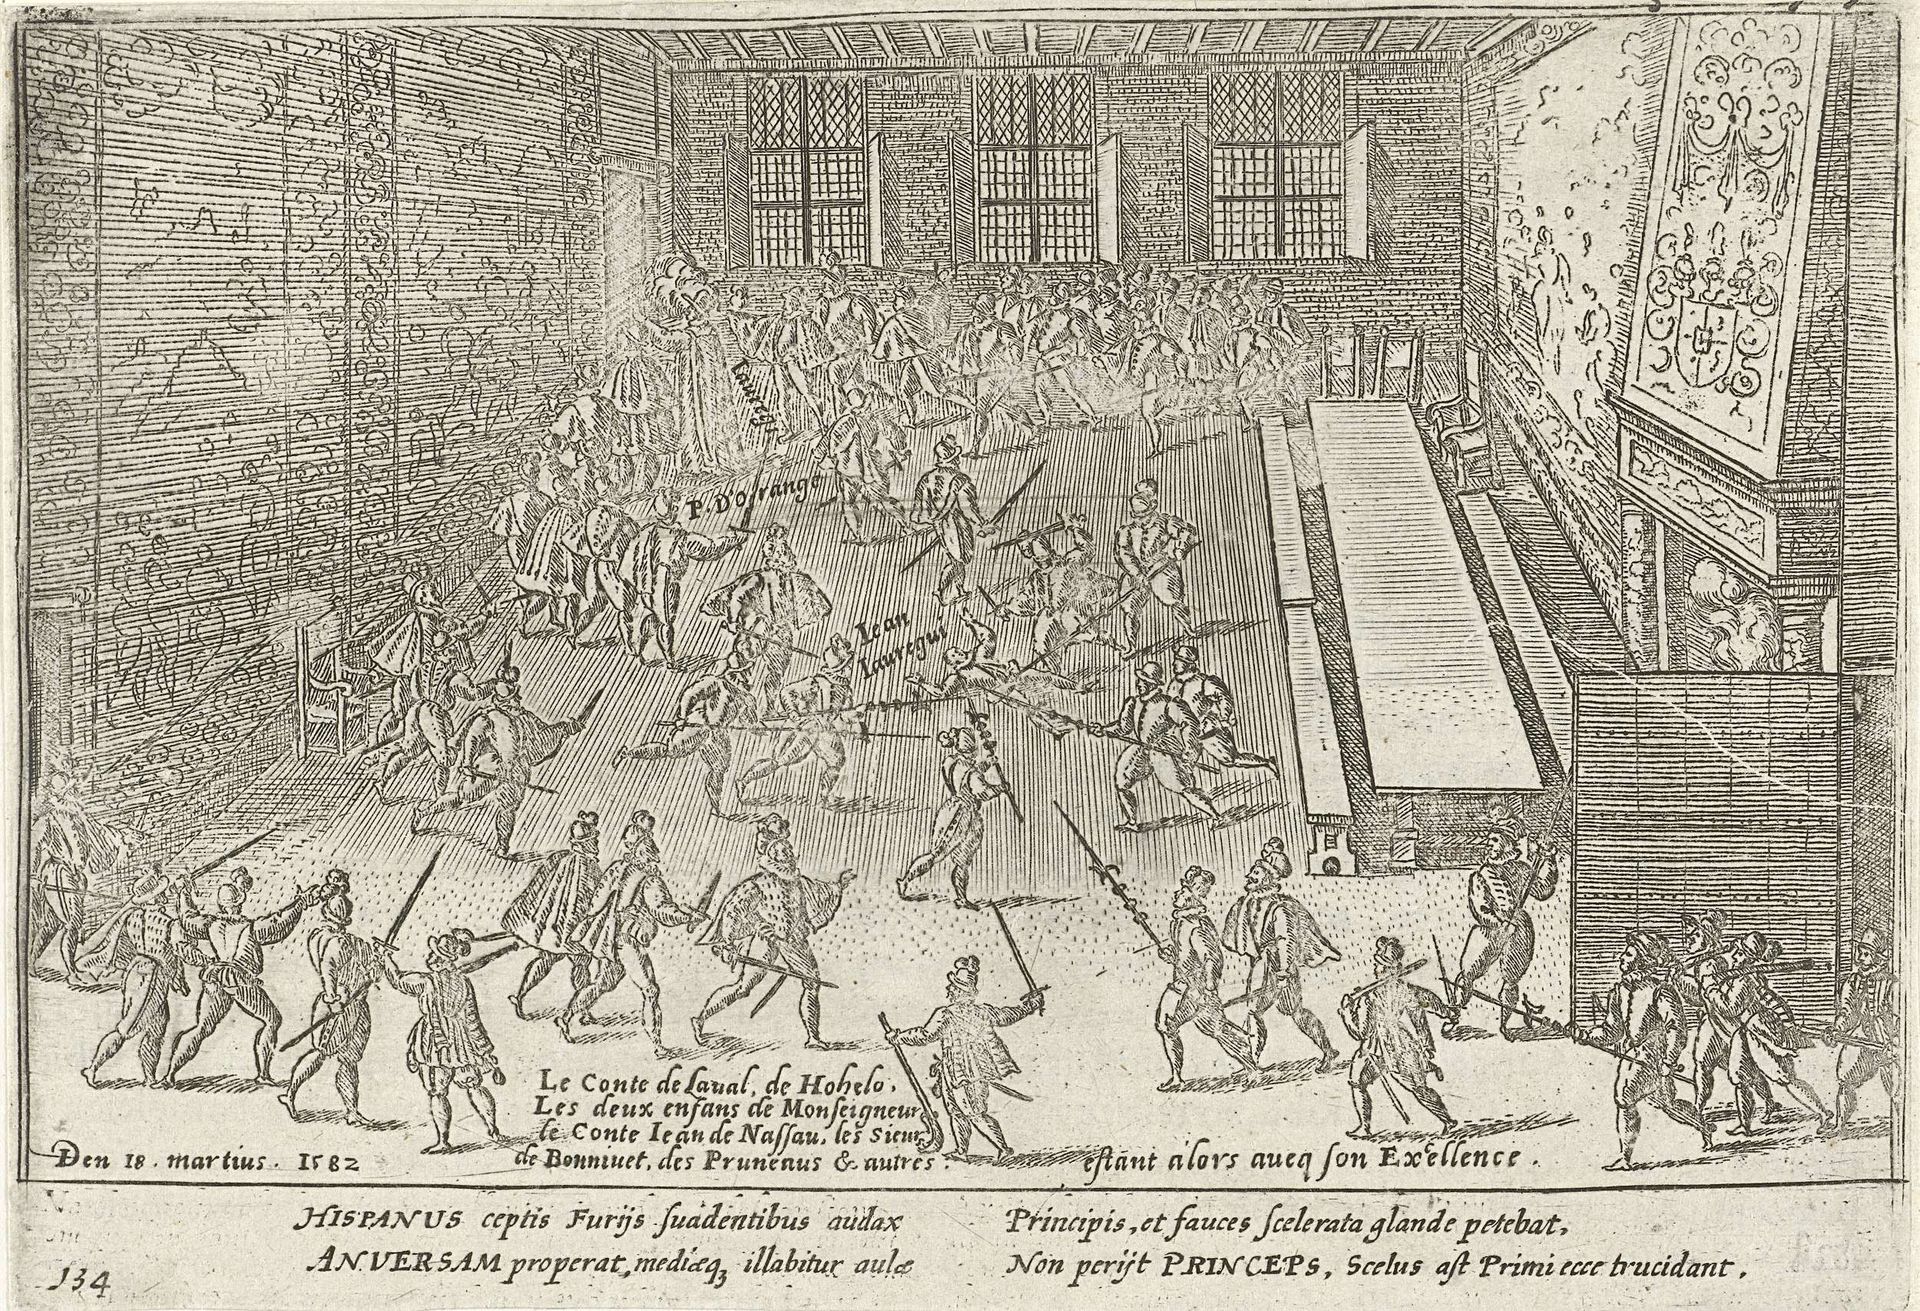 Iauregᵗ
P. D'Orange
Iean
Iauregui
Le Conte de Laval, de Hohelo.
Les deux enfans de Monſeigneur
le Conte Iean de Naſſau, les Sieurs
de Bonnivet, des Pruneaus & autres.
eſtant alors aueq ſon Exellence.
Den 18. martius. 1582
HISPANUS ceptis Furijs ſuadentibus audax
ANVERSAM properat, mediæqꝫ illabitur aulæ
Principis, et fauces ſcelerata glande petebat,
Non perijt PRINCEPS, Scelus aſt Primi ecce trucidant.
134